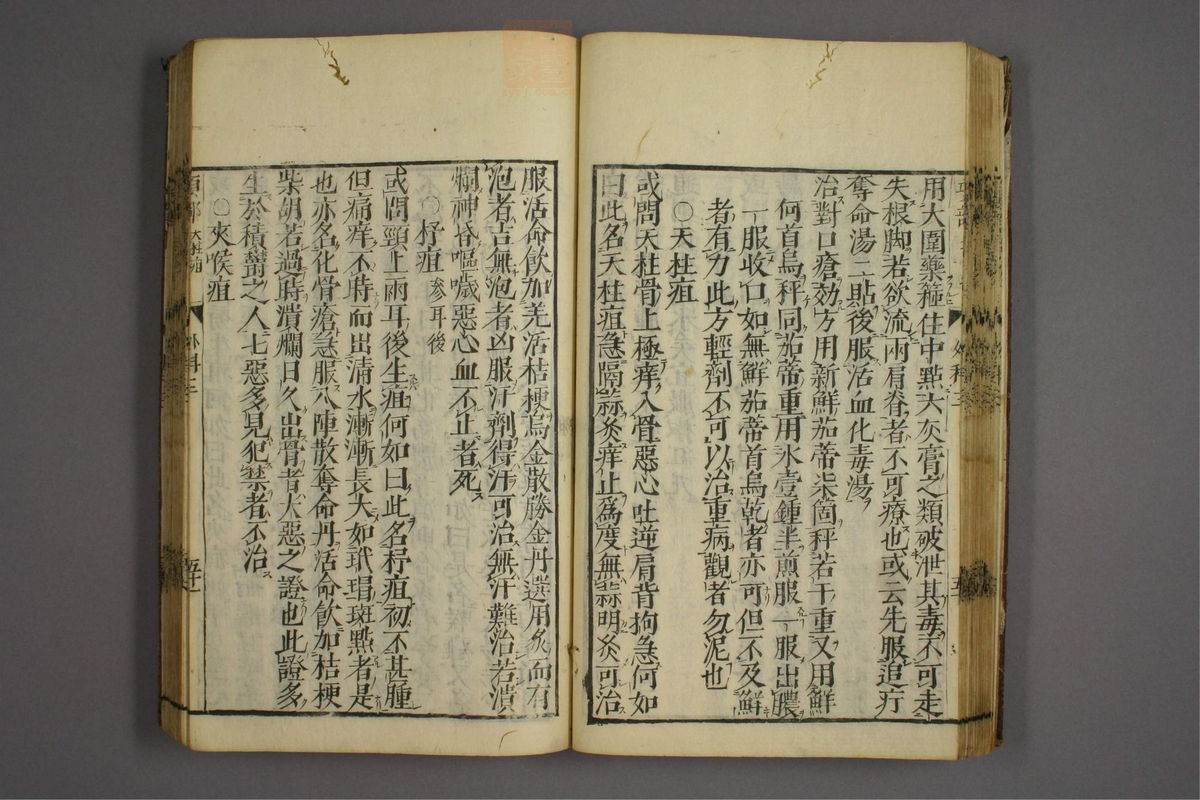 用大圍藥箍住中點大灰膏之類破泄其毒不可走
失根脚若欲流兩肩脊者不可療也或云先服追疔
奪命湯二貼後服活血化毒湯
治對口瘡効方用新鮮茄蒂柒箇秤若干重又用鮮
何首烏秤同茄蒂重用水壹鍾半煎服一服出膿
一服收口如無鮮茄蒂首烏乾者亦可但不及鮮
者有力此方輕劑不可以治重病觀者勿泥也
〇天柱疽
或問天柱骨上極痒入骨惡心吐逆肩背拘急何如
曰此名天柱疽急隔蒜灸痒止爲度無蒜明灸可治
服活命飮加羌活桔梗烏金散勝金丹選用灸而有
泡者吉無泡者凶服汗劑得汗可治無汗難治若潰
爛神昏嘔噦惡心血不止者死
〇杼疽 參耳後
或問頸上兩耳後生疽何如曰此名杼疽初不甚腫
但痛痒不時而出清水漸漸長大如玳瑁斑點者是
也亦名化骨瘡急服八陣散奪命丹活命飮加桔梗
柴胡若過時潰爛日久出骨者大惡之證也此證多
生於積鬱之人七惡多見犯禁者不治
〇夾喉疽
天柱疽
外科三
五十一